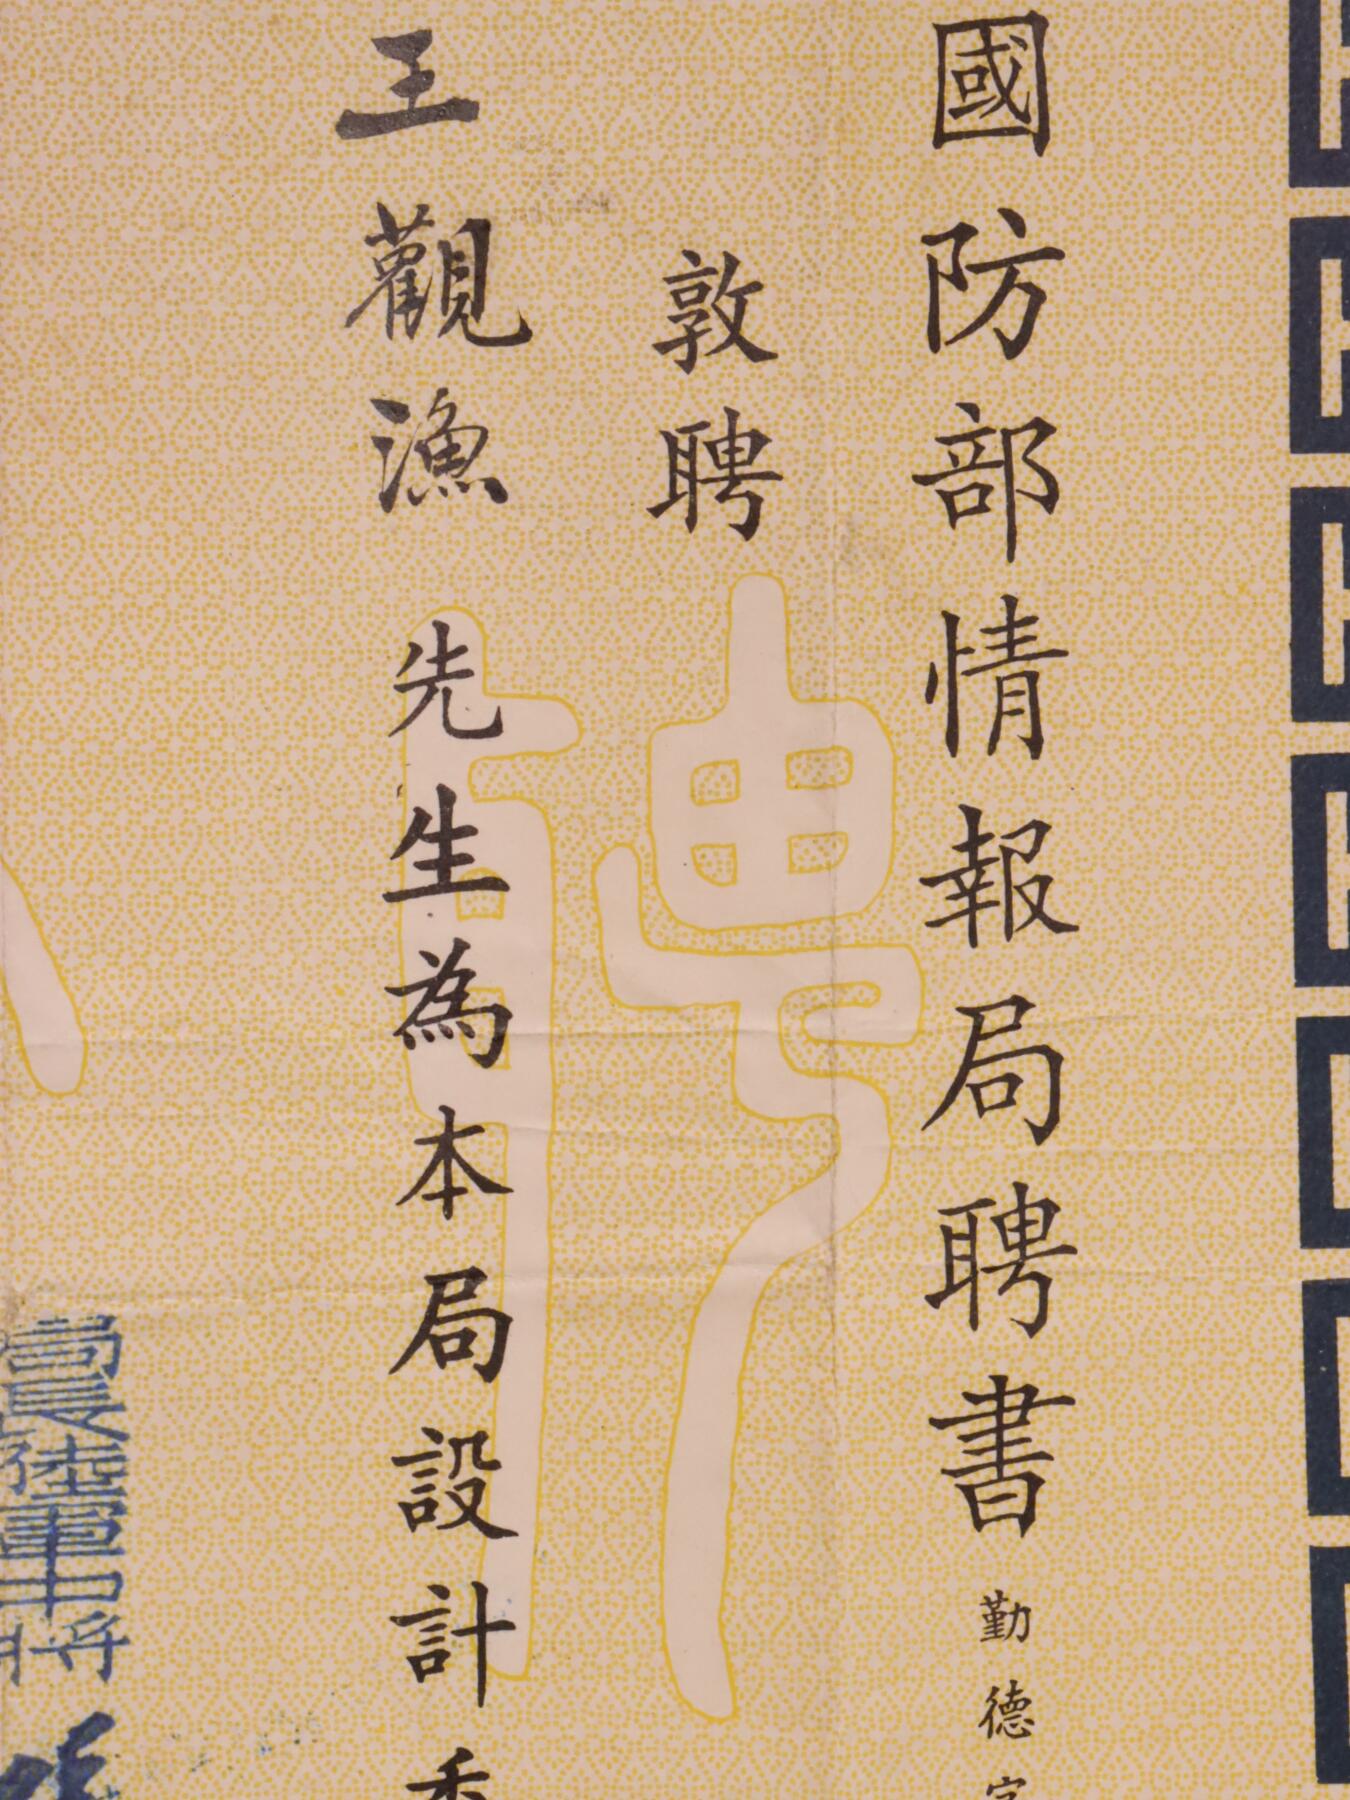 國防部情報局聘書 勤德字
敦聘
王觀漁 先生為本局設計
局長陸軍中將
聘